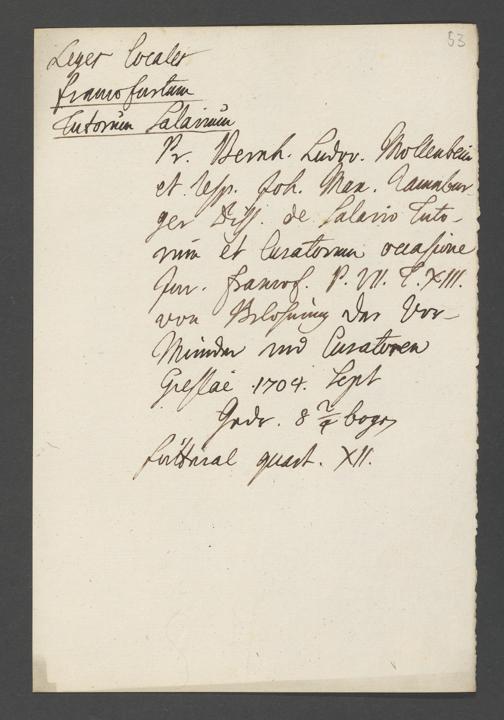 53
Leges Locales
Francofurtum
Tutorum Salarium
Pr. Bernh. Ludov. Mollenbein
et resp. Joh. Max.
ger Diss. de Salario Tuto-
rum et Curatorum occasione
Jur. Francof. P. VII. T. XIII.
von Belohnung der Vor-
münder und Curatoren
1704. Sept
8 bogen
quart. XII.